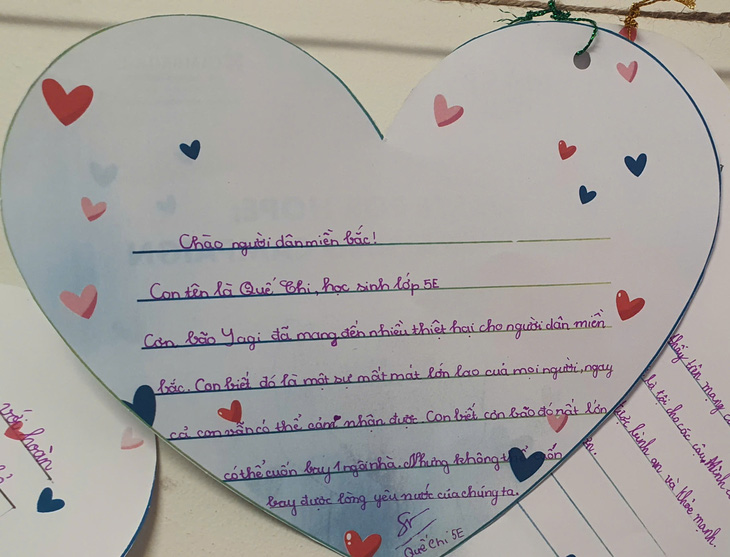 Chào người dân miền bắc!
Con tên là Quế Chi, học sinh lớp 5E
Cơn bão Yagi đã mang đến nhiều thiệt hại cho người dân miền
bắc. Con biết đó là một sự mất mát lớn lao của mọi người, ngay
cả con vẫn có thể cảm nhận được. Con biết cơn bão đó rất lớn
có thể cuốn bay 1 ngôi nhà. Nhưng không
bay được lòng yêu nước của chúng ta.
Quế Chi 5E
với hoàn
thấy tân mạng
là tớ cho các cậu. Mình
bình an và khỏe mạnh.